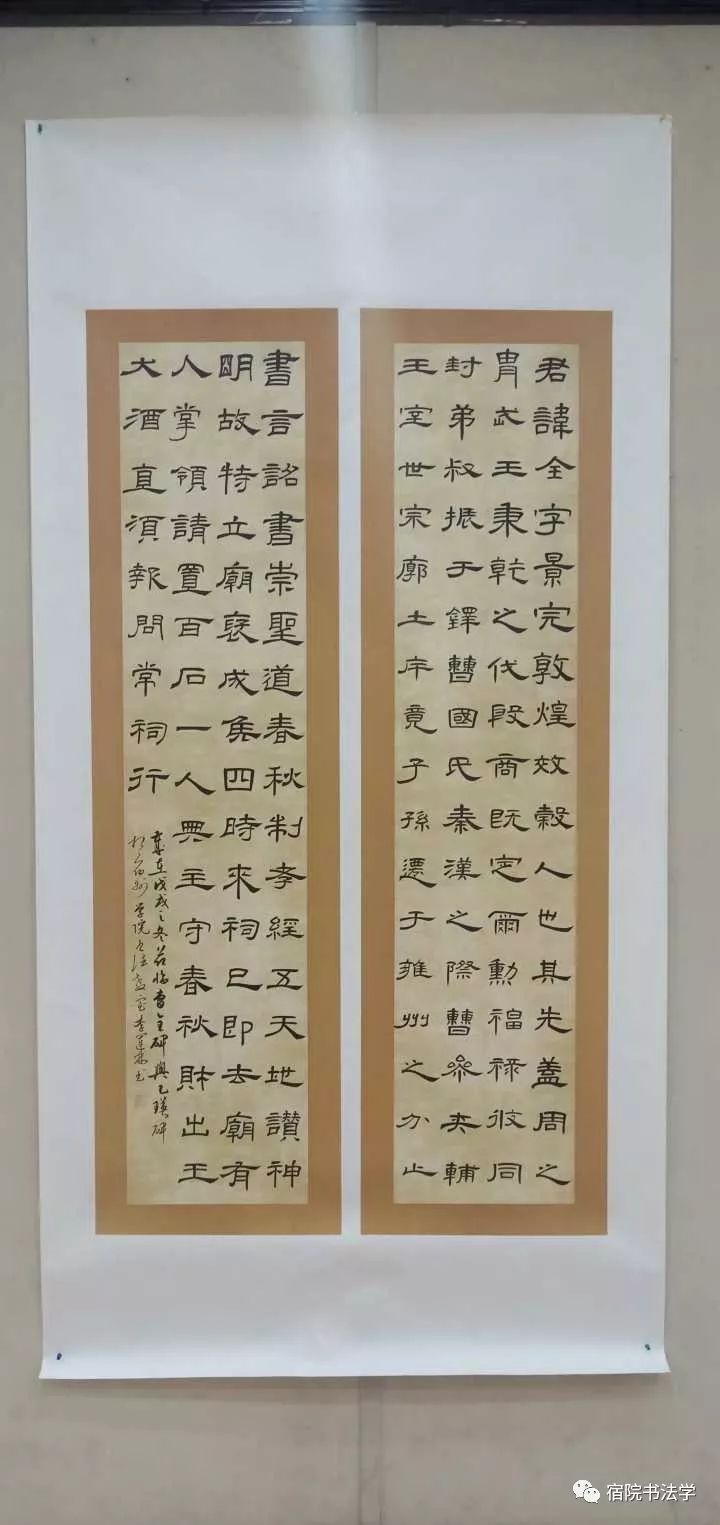 君諱全字景完敦煌效穀人也其先蓋周之
胄武王秉乾之代殷商既定爾勳福祿攸同
封弟叔振于鐸曹國氏秦漢之際曹參夾輔
王室世宗廓土斥竟子孫遷于雍州之分止
書言詔書崇聖道春秋制孝經五天地讚神
明故特立廟褒成侯四時來祠已即去廟有
人掌領請置百石一人典主守春秋財出王
大酒直須報問常祠行
歲在戊戌之冬節臨曹全碑與乙瑛碑
於宿州学院書法教室書
宿院书法学